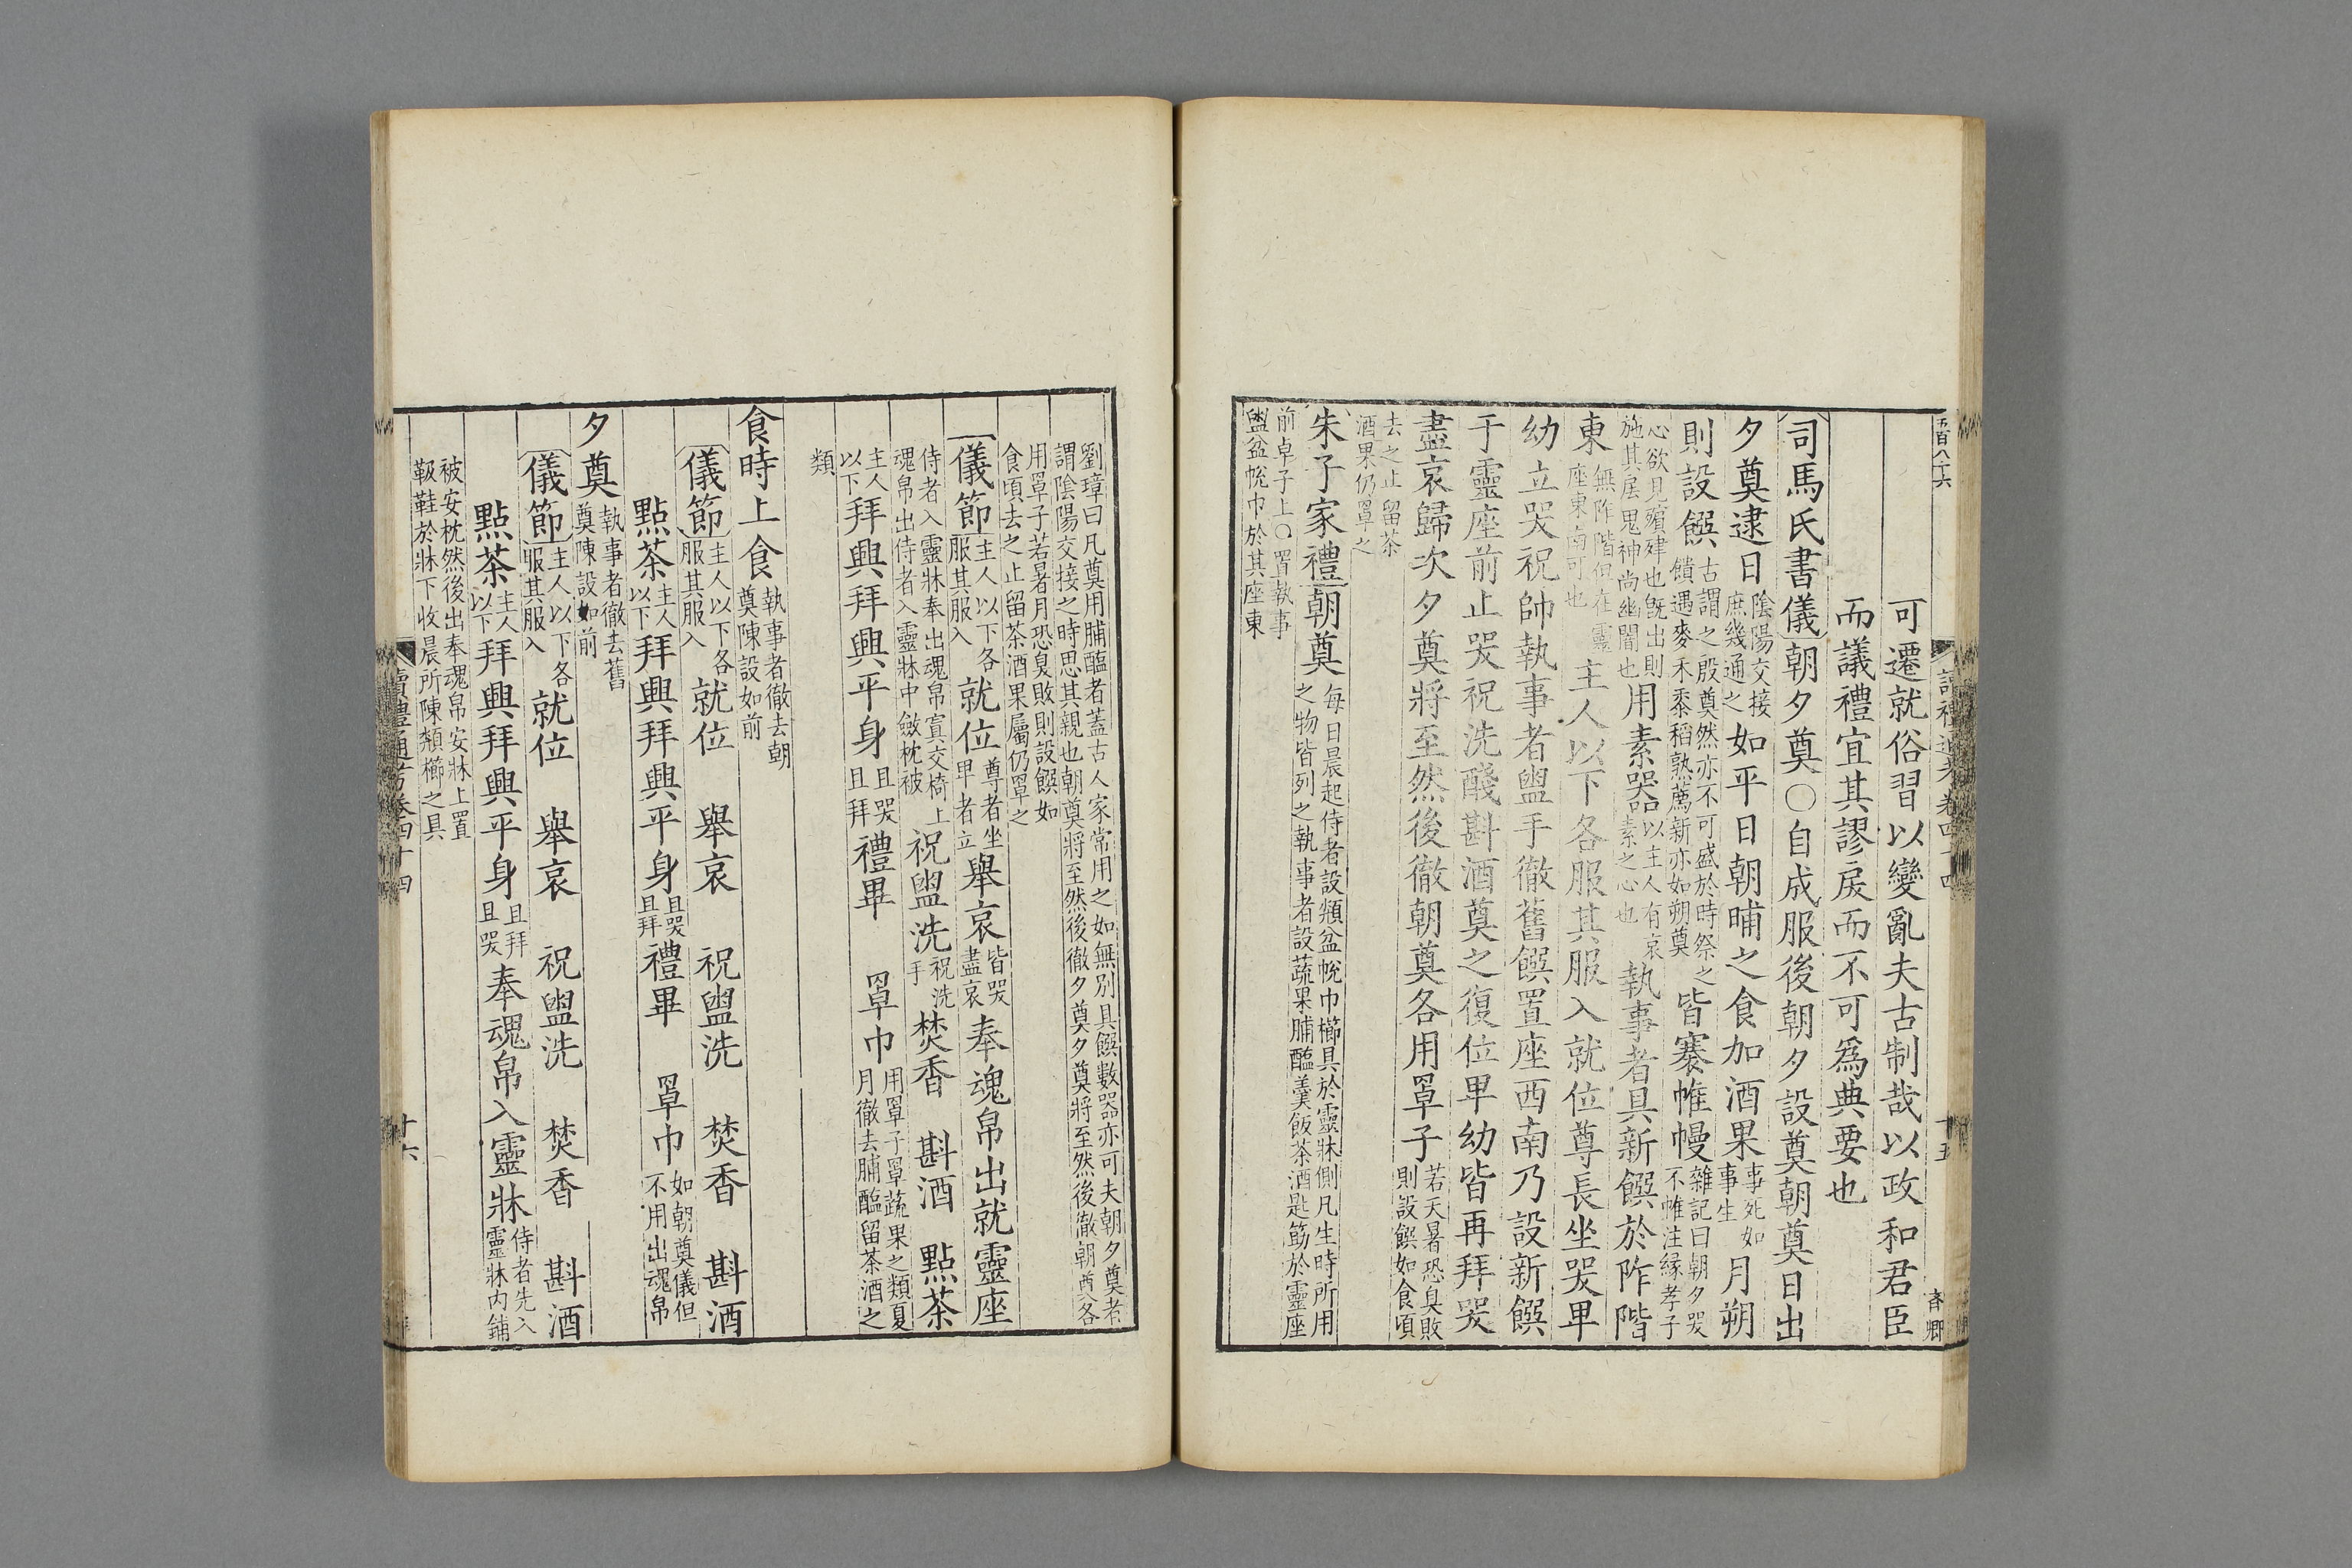 五百八十六
讀禮通考卷四十四
十五
可遷就俗習以變亂夫古制哉以政和君臣
而議禮宜其謬戾而不可爲典要也
司馬氏書儀朝夕奠〇自成服後朝夕設奠朝奠日出
夕奠逮日陰陽交接庶幾通之如平日朝晡之食加酒果事死如事生月朔
則設饌古謂之殷奠然亦不可盛於時祭之饋遇麥禾黍稻熟薦新亦如朔奠皆褰帷幔雜記曰朝夕哭不帷注緣孝子
心欲見殯肂也旣出則施其扆鬼神尚幽闇也用素器以主人有哀素之心也執事者具新饌於阼階
東無阼階但在靈座東南可也主人以下各服其服入就位尊長坐哭卑
幼立哭祝帥執事者盥手徹舊饌置座西南乃設新饌
于靈座前止哭祝洗醆斟酒奠之復位卑幼皆再拜哭
盡哀歸次夕奠將至然後徹朝奠各用罩子若天暑恐臭敗則設饌如食頃
去之止留茶酒果仍罩之
朱子家禮朝奠每日晨起侍者設頮盆帨巾櫛具於靈牀側凡生時所用之物皆列之執事者設蔬果脯醢羹飯茶酒匙筯於靈座
前卓子上〇置執事盥盆帨巾於其座東
劉璋曰凡奠用脯醢者蓋古人家常用之如無別具饌數器亦可夫朝夕奠者
謂陰陽交接之時思其親也朝奠將至然後徹夕奠夕奠將至然後徹朝奠各
用罩子若暑月恐臭敗則設饌如
食頃去之止留茶酒果屬仍罩之
儀節主人以下各服其服入就位尊者坐卑者立舉哀皆哭盡哀奉魂帛出就靈座
侍者入靈牀奉出魂帛寘交椅上魂帛出侍者入靈牀中斂枕被祝盥洗祝洗手焚香　斟酒　點茶
主人以下拜興拜興平身且哭且拜禮畢　罩巾用罩子罩蔬果之類夏月徹去脯醢留茶酒之
類
食時上食執事者徹去朝奠陳設如前
儀節主人以下各服其服入就位　舉哀　祝盥洗　焚香　斟酒
點茶主人以下拜興拜興平身且哭且拜禮畢　罩巾如朝奠儀但不用出魂帛
夕奠執事者徹去舊奠陳設如前
儀節主人以下各服其服入就位　舉哀　祝盥洗　焚香　斟酒
點茶主人以下拜興拜興平身且拜且哭奉魂帛入靈牀侍者先入靈牀內鋪
被安枕然後出奉魂帛安牀上置
靸鞋於牀下收晨所陳頮櫛之具
讀禮通考卷四十四
十六